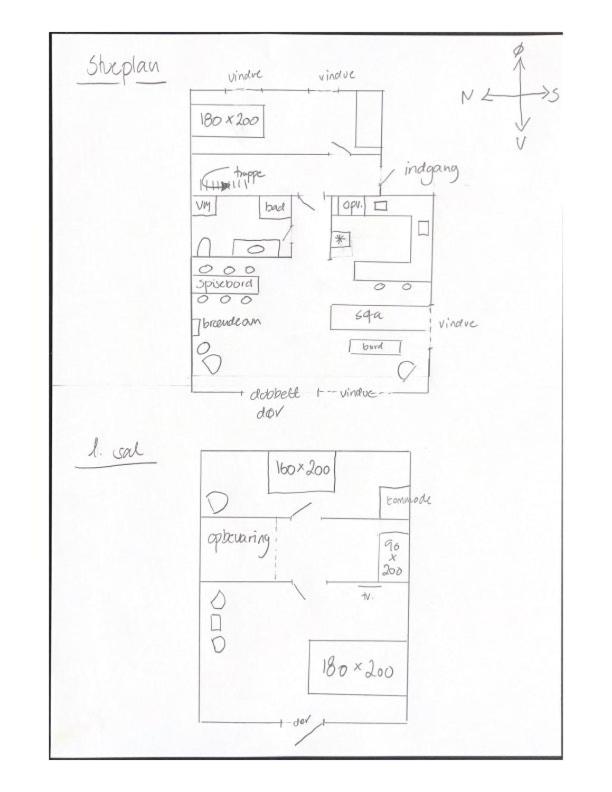 Stueplan
Ø
N
S
V
vindue
vindue
180 x 200
trappe
indgang
VM
bad
opv.
spisebord
brændeovn
sofa
bord
vindue
dobbelt
dør
vindue
1. sal
160 x 200
kommode
opbevaring
90
x
200
tv.
180 x 200
dør